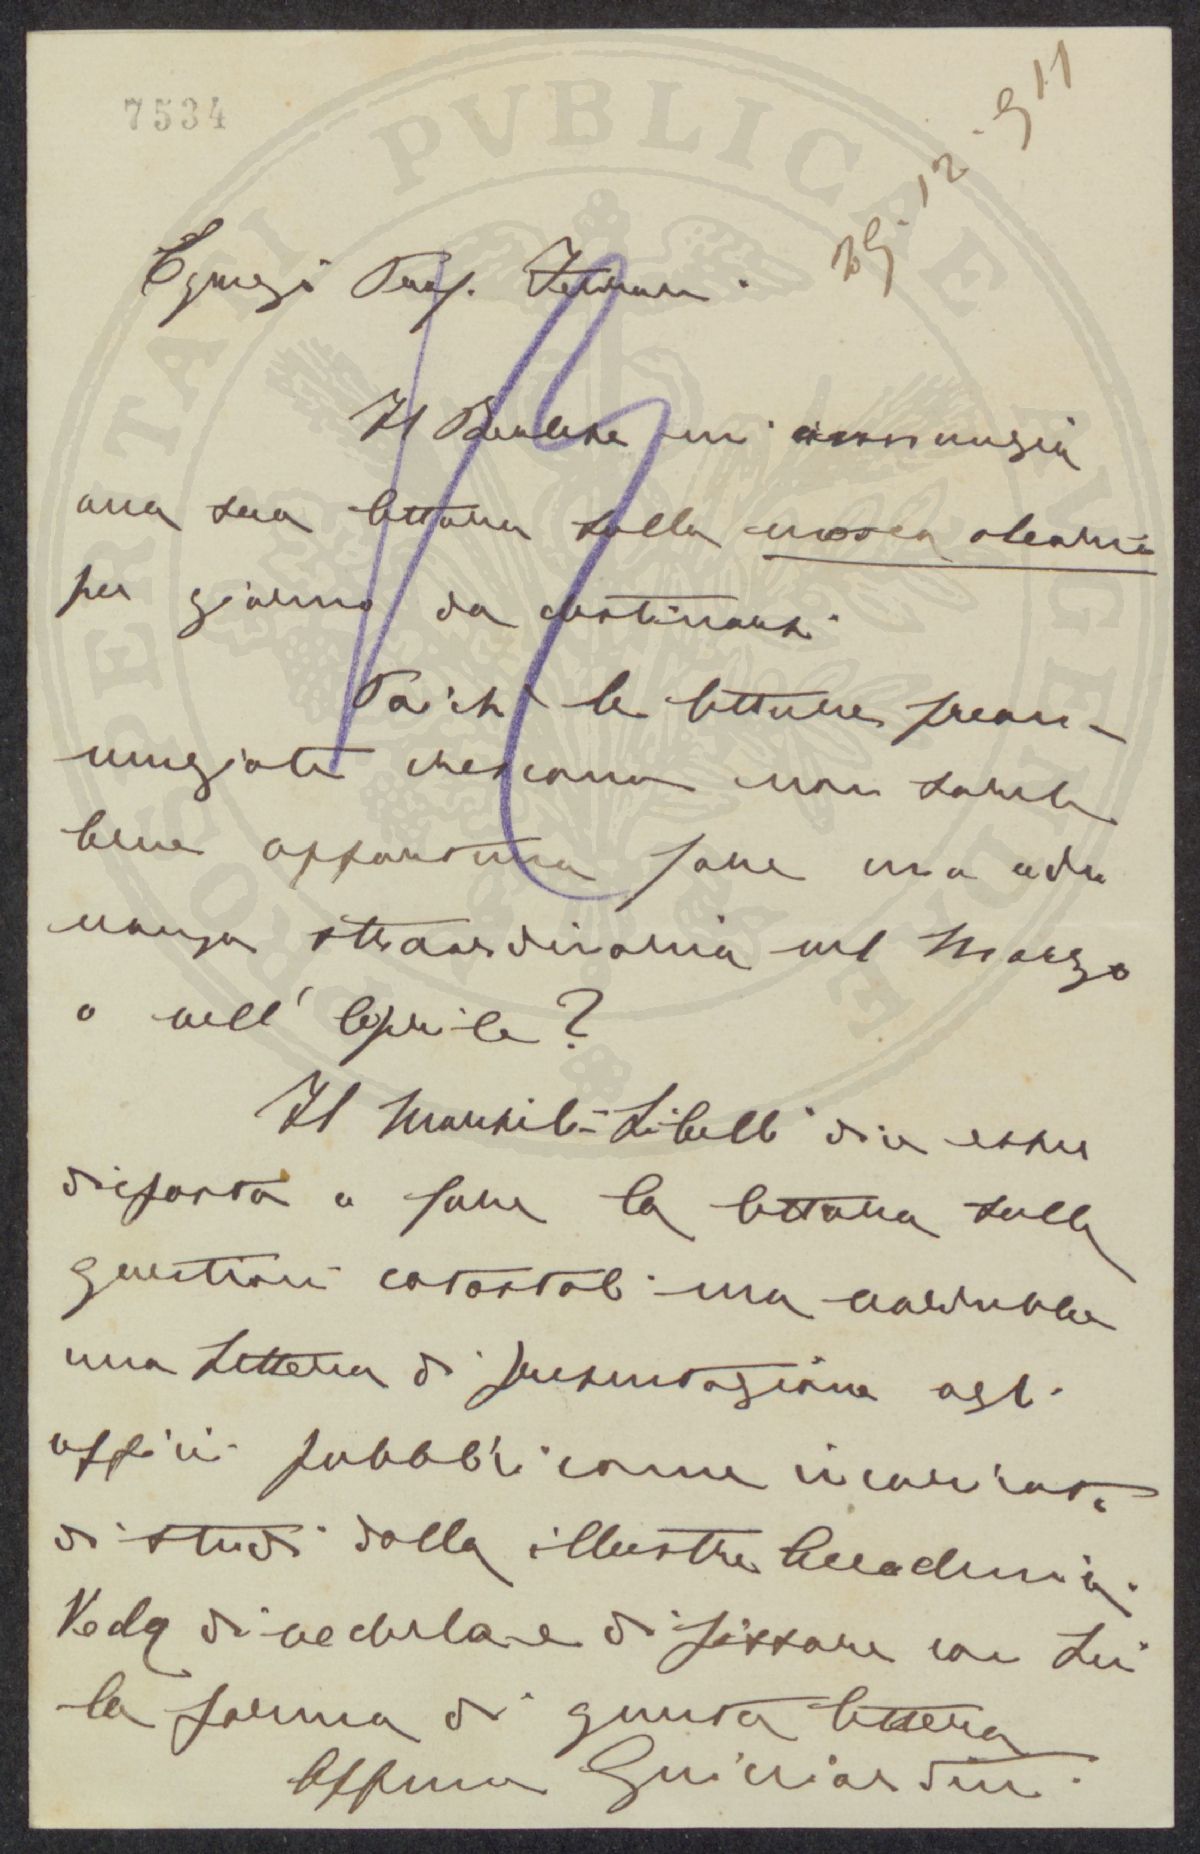 7534
29-12-911
Egregi Prof. Ferrari.
Il Berlese mi annunzia
una sua lettura sulla mosca olearia
per giorno da destinarsi.
Poichè le letture prean-
nunziate crescono non sareb
bene opportuno fare una adu
nanza straordinaria nel Marzo
o nell'Aprile?
Il Marsili-Libelli dice esser
disposto a fare la lettura sulle
questioni catastali ma vorrebbe
una Lettera di presentazione agli
uffici pubblici come incaricato
di studi dalla illustre Accademia.
Veda di vederla e di fissare con Lui
la forma di questa lettera
Affmo Guicciardini
PROSPERITATI PVBLICAE AVGENDAE